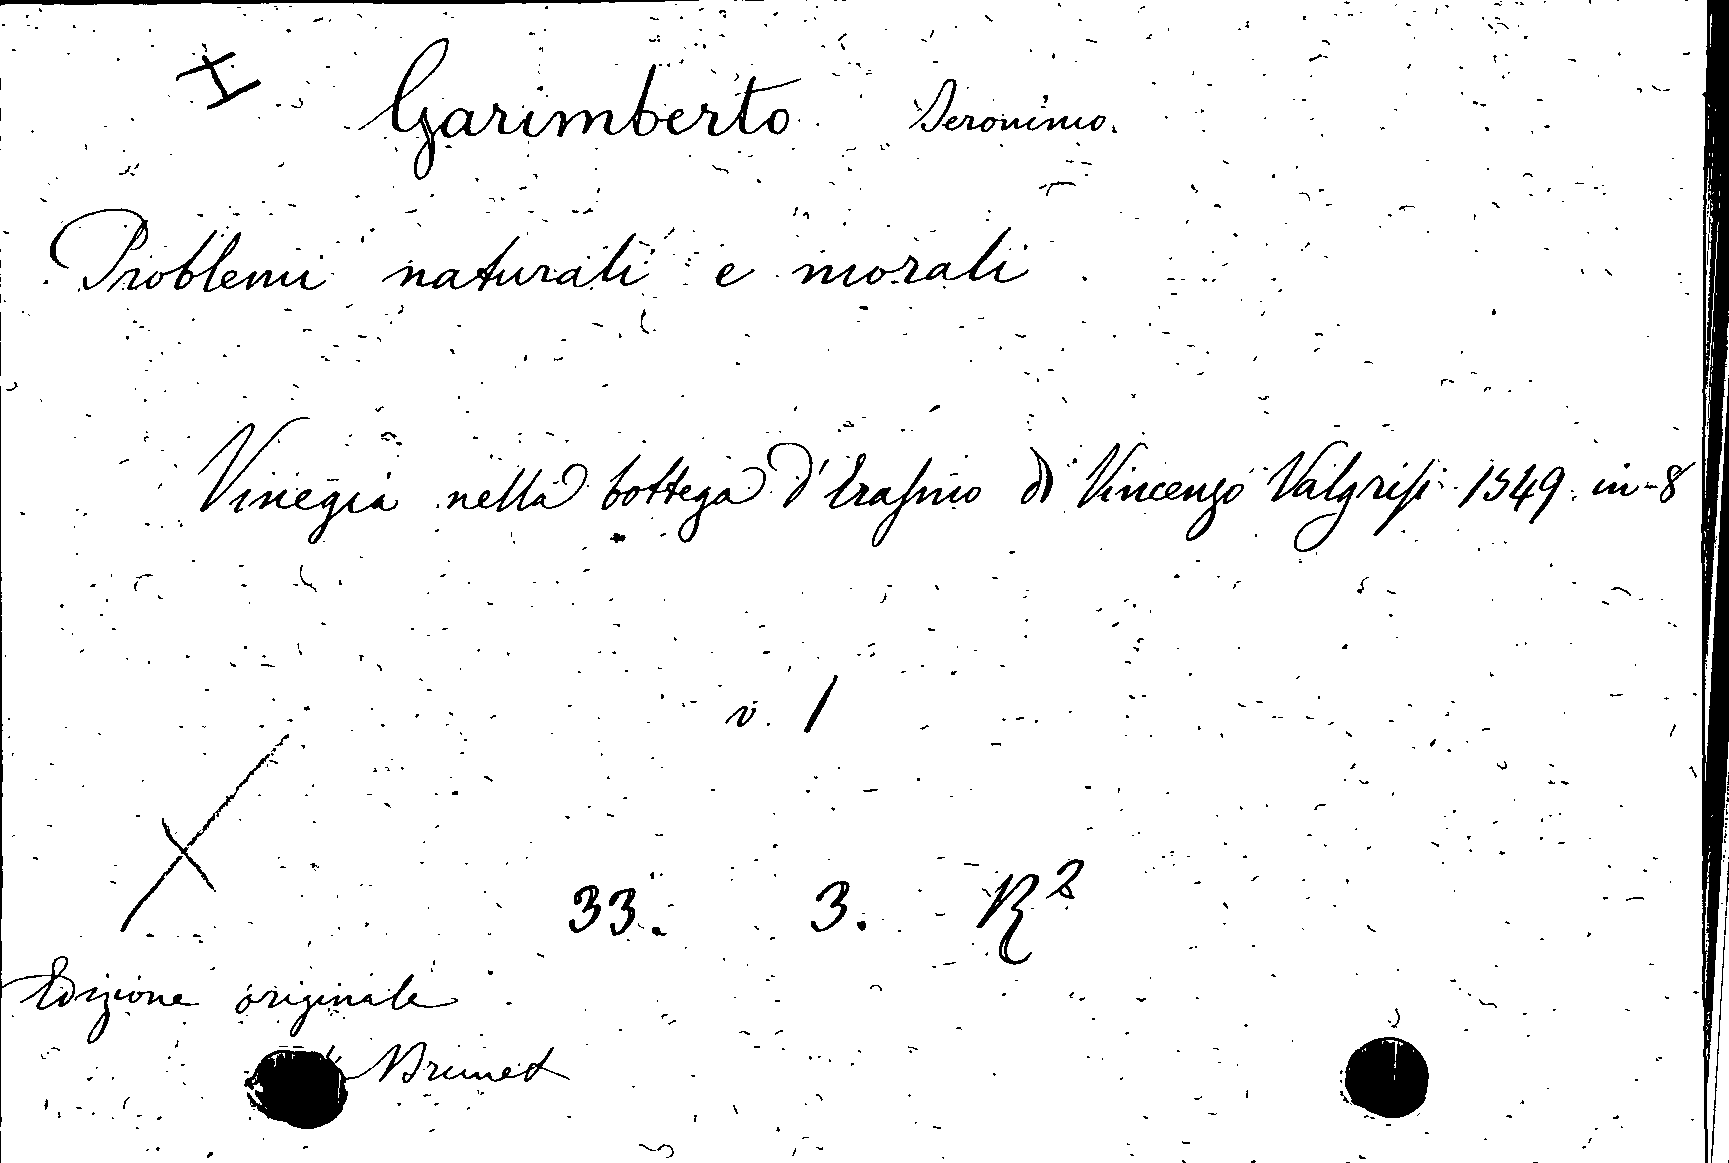 Garimberto Jeronimo.
Problemi naturali e morali
Vinegia nella bottega d'Erasmo di Vincenzo Valgrisi 1549 in-8
v. 1
33. 3. R²
Edizione originale
Brunet